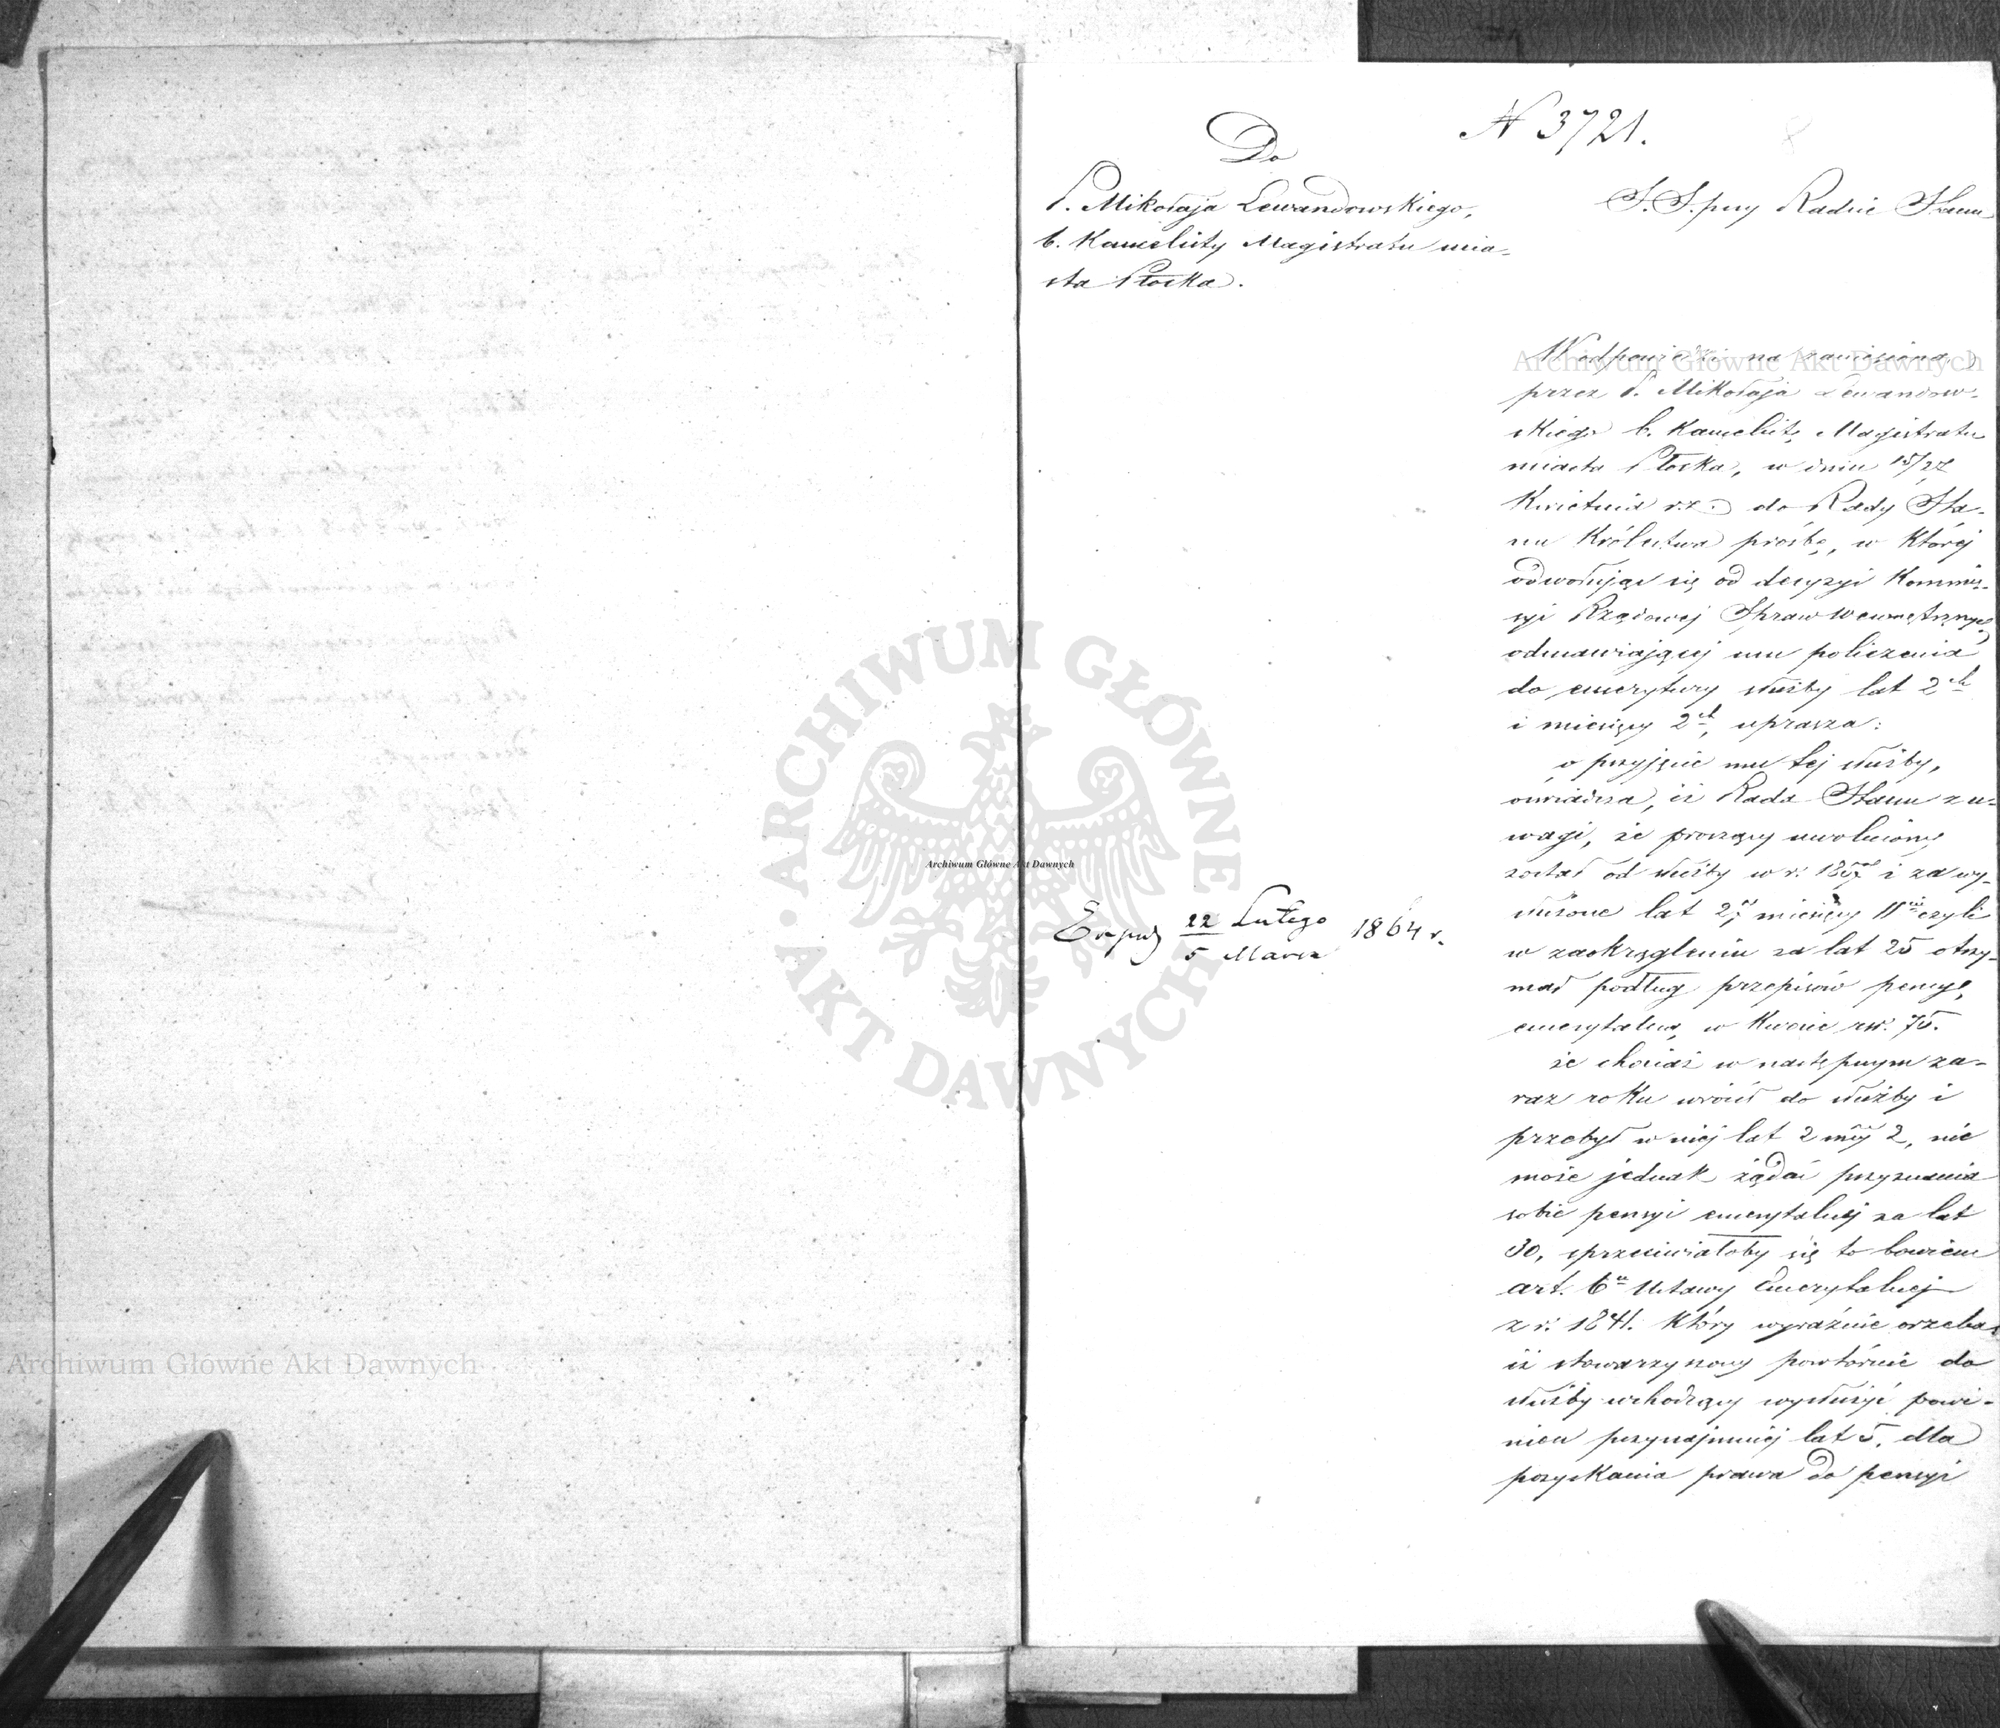 N 3721.
Do
P. Mikołaja Lewandowskiego,
b. Kancelisty Magistratu mia-
sta Płocka.
S. S. przy Radzie Stanu
W odpowiedzi na zaniesioną
przez P. Mikołaja Lewandow-
skiego b. Kancelistę Magistratu
miasta Płocka, w dniu 15/27
Kwietnia r.z. do Rady Sta-
nu Królestwa prośbę, w której
odwołując się od decyzyi Kommis-
syi Rządowej Spraw Wewnętrznych
odmawiającej mu policzenia
do emerytury służby lat 2ch
i miesięcy 2ch, uprasza:
o przyjęcie mu tej służby,
oświadcza, iż Rada Stanu z u-
wagi, że proszący uwolniony
został od służby w r. 1857 i za wy-
służone lat 27 miesięcy 11 czyli
w zaokrągleniu za lat 25 otrzy-
mał podług przepisów pensyę
emerytalną w kwocie rsr. 75.
że chociaż w następnym za-
raz roku wrócił do służby i
przebył w niej lat 2 mcy 2, nie
może jednak żądać przyznania
sobie pensyi emerytalnej za lat
30, sprzeciwiałoby się to bowiem
art. 6 Ustawy Emerytalnej
z r. 1841. który wyraźnie orzeka
iż stowarzyszony powtórnie do
służby wchodzący wysłużyć powi-
nien przynajmniej lat 5, dla
pozyskania prawa do pensyi
Exped 22 Lutego 1864 r.
5 Marca
Archiwum Główne Akt Dawnych
ARCHIWUM GŁÓWNE AKT DAWNYCH
Archiwum Główne Akt Dawnych
Archiwum Główne Akt Dawnych